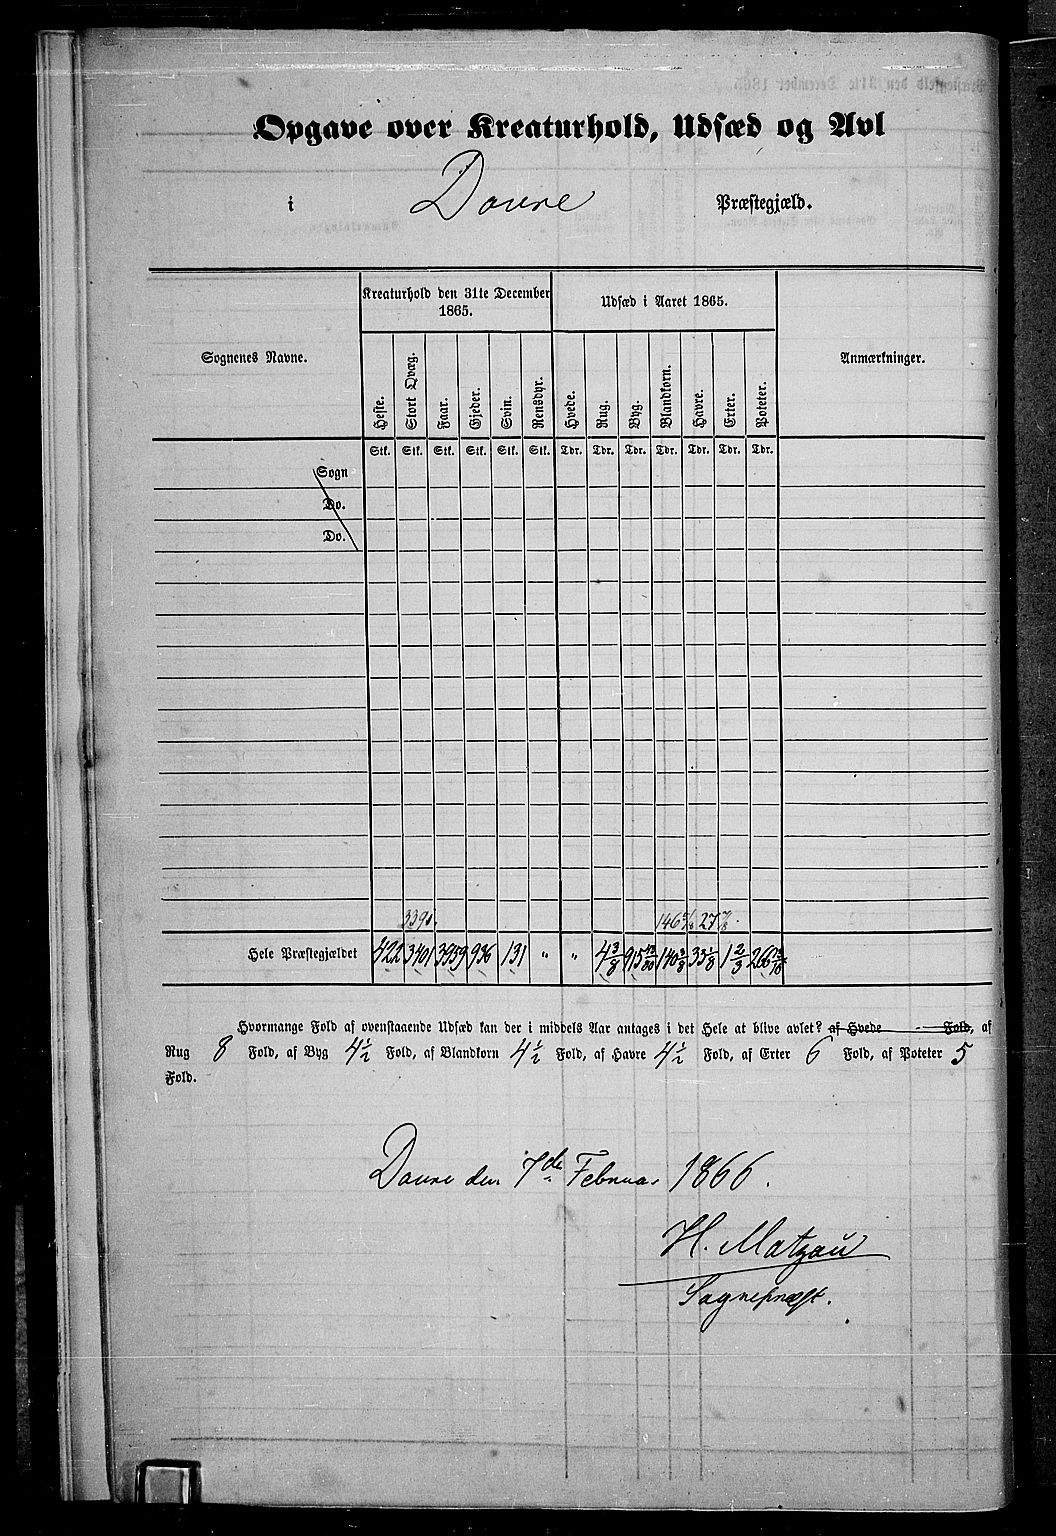 Opgave over Kreaturhold, Udsæd og Avl
i Dovre Præstegjæld.
Sognenes Navne. Kreaturhold den 31te December 1865. Udsæd i Aaret 1865. Anmærkninger.
Heste. Stort Qvæg. Faar. Gjeder. Svin. Rensdyr. Hvede. Rug. Byg. Blandkorn. Havre. Erter. Poteter.
Stk. Stk. Stk. Stk. Stk. Stk. Tdr. Tdr. Tdr. Tdr. Tdr. Tdr. Tdr.
Sogn
Do.
Do.
Hele Præstegjældet 422 3401 3959 936 131 " " 4 3/8 915 140 3/8 33 1/8 1 2/3
Hvormange Fold af ovenstaaende Udsæd kan der i middels Aar antages i det Hele at blive avlet? af Hvede Fold, af
Rug 8 Fold, af Byg 4 1/2 Fold, af Blandkorn 4 1/2 Fold, af Havre 4 1/2 Fold, af Erter 6 Fold, af Poteter 5
Fold.
Dovre den 7de Februar 1866.
H. Matzau
Sognepræst.